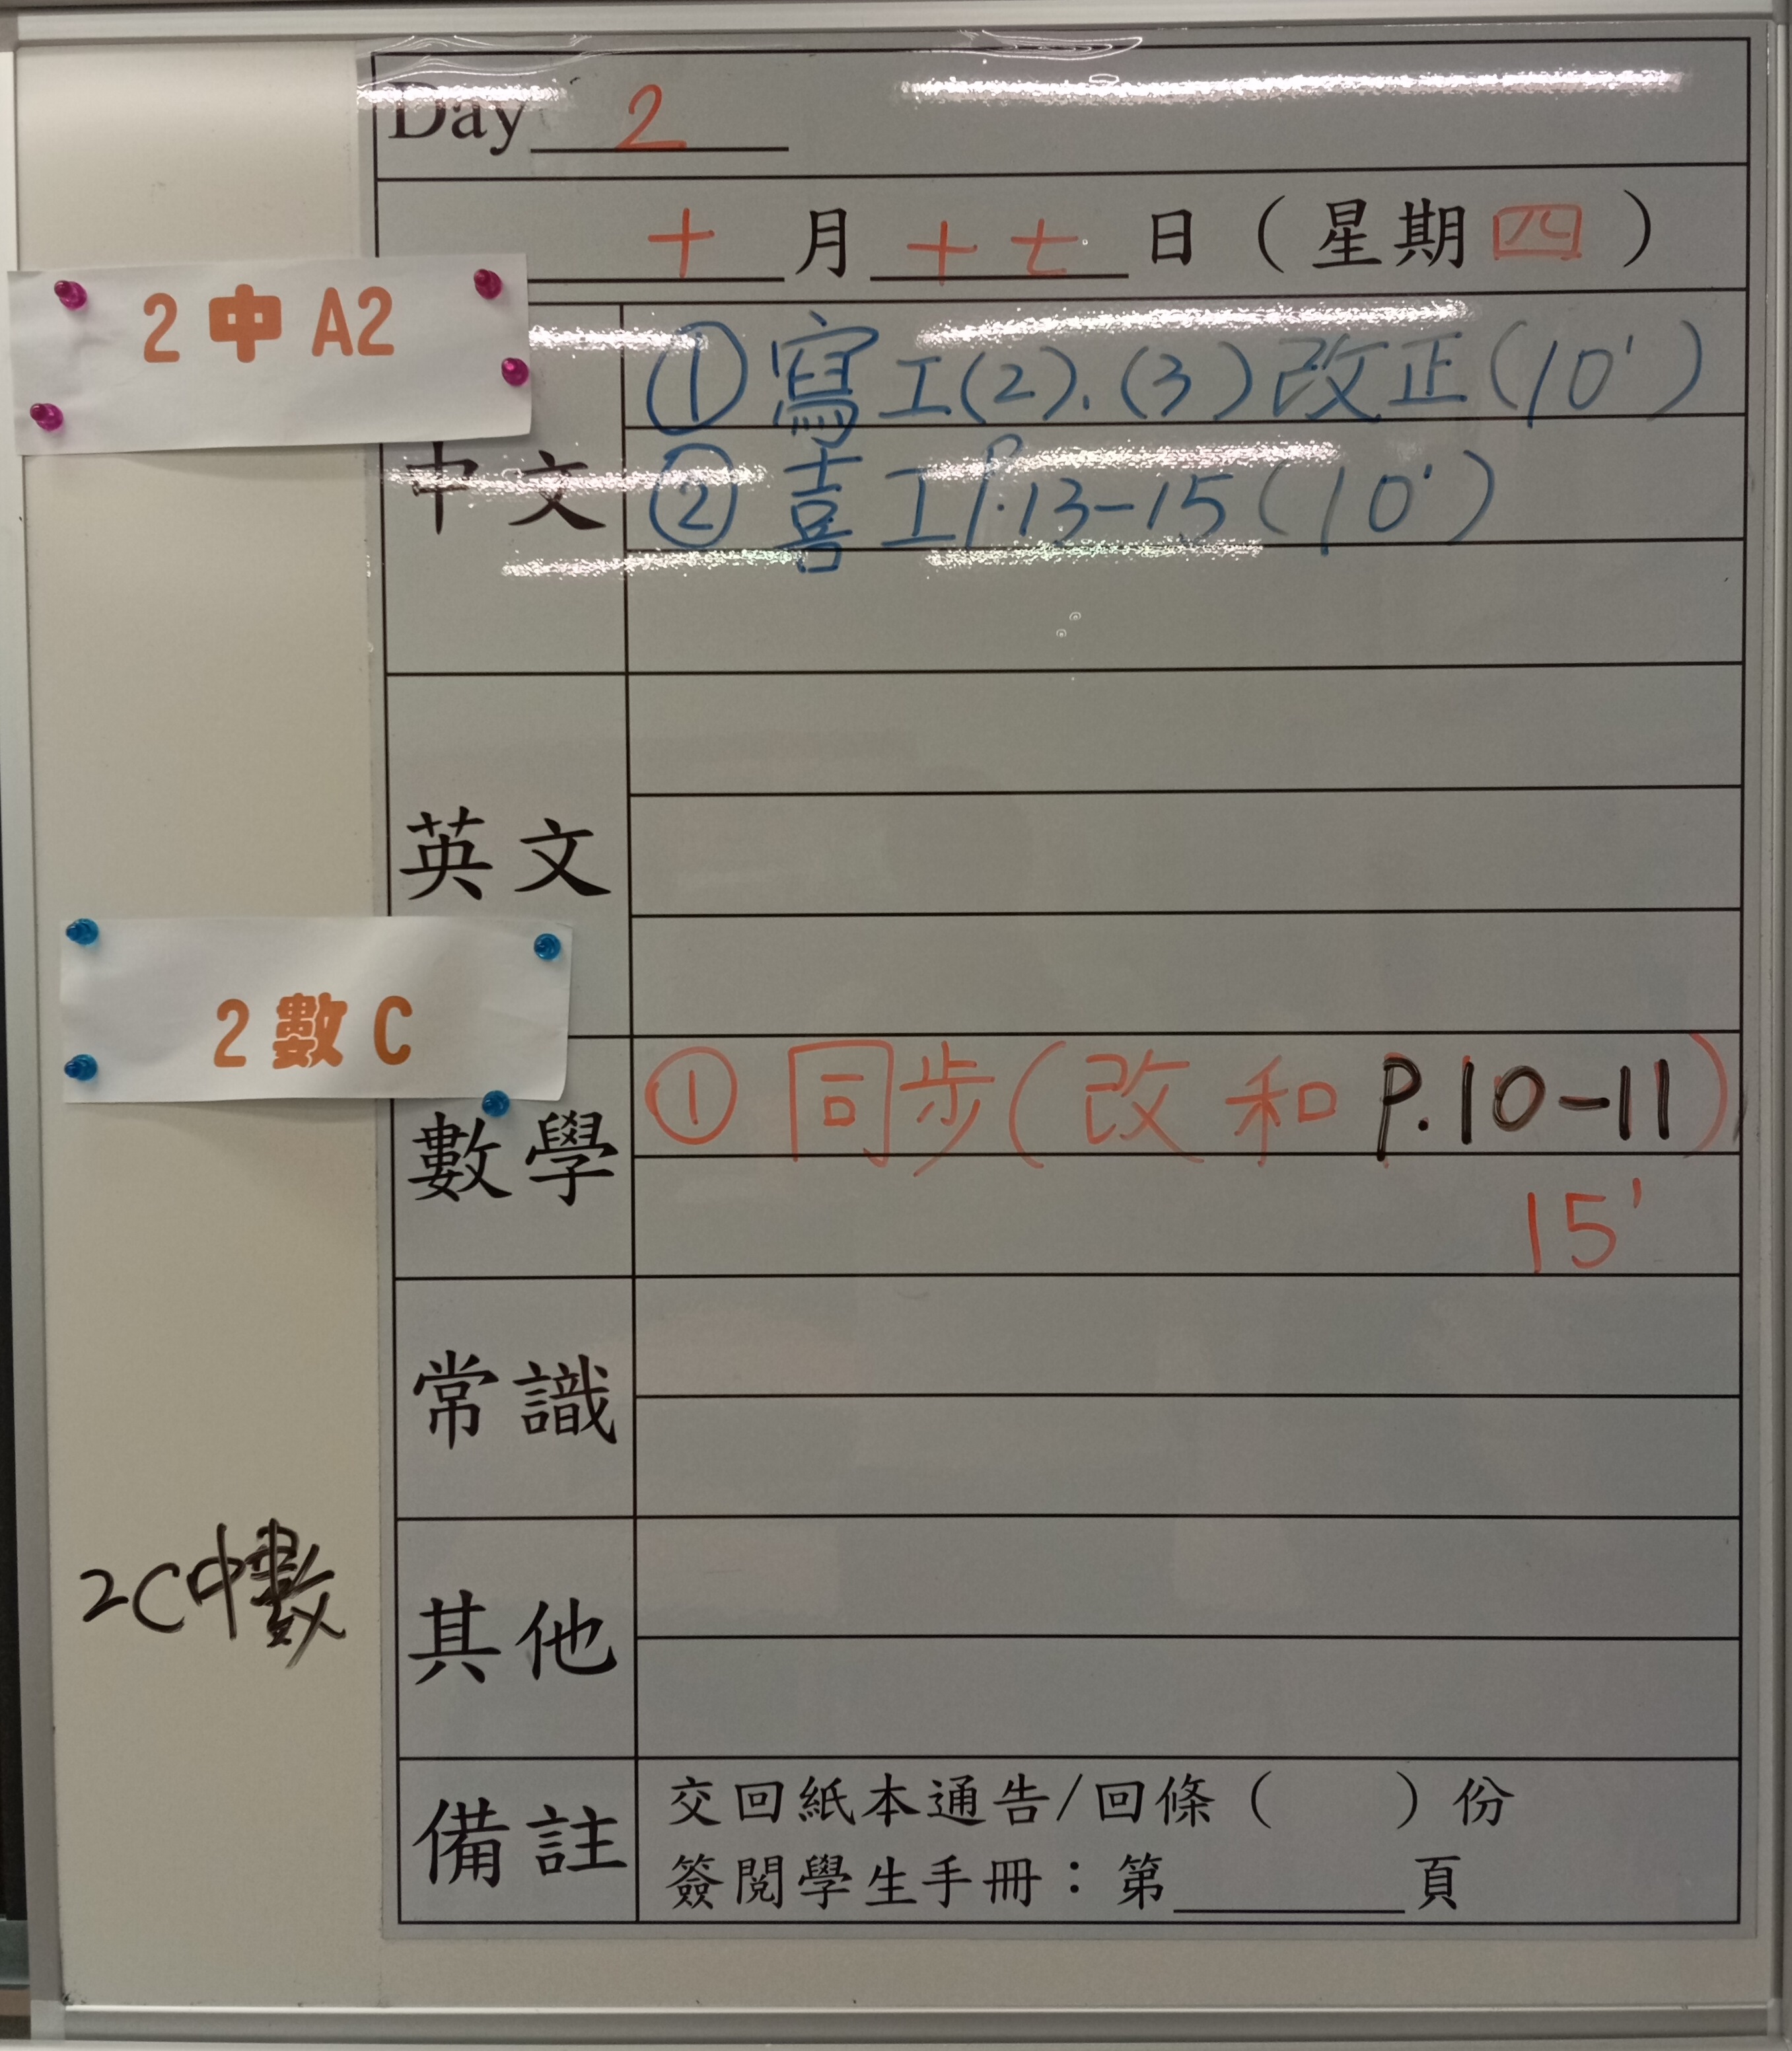 Day 2
十月十七日（星期四）
2 中 A2
中文
① 寫工(2).(3)改正(10')
② 喜工P.13-15(10')
英文
2 數 C
數學
① 同步(改和P.10-11)
15'
常識
2C中數
其他
備註
交回紙本通告/回條（　　）份
簽閱學生手冊：第______頁